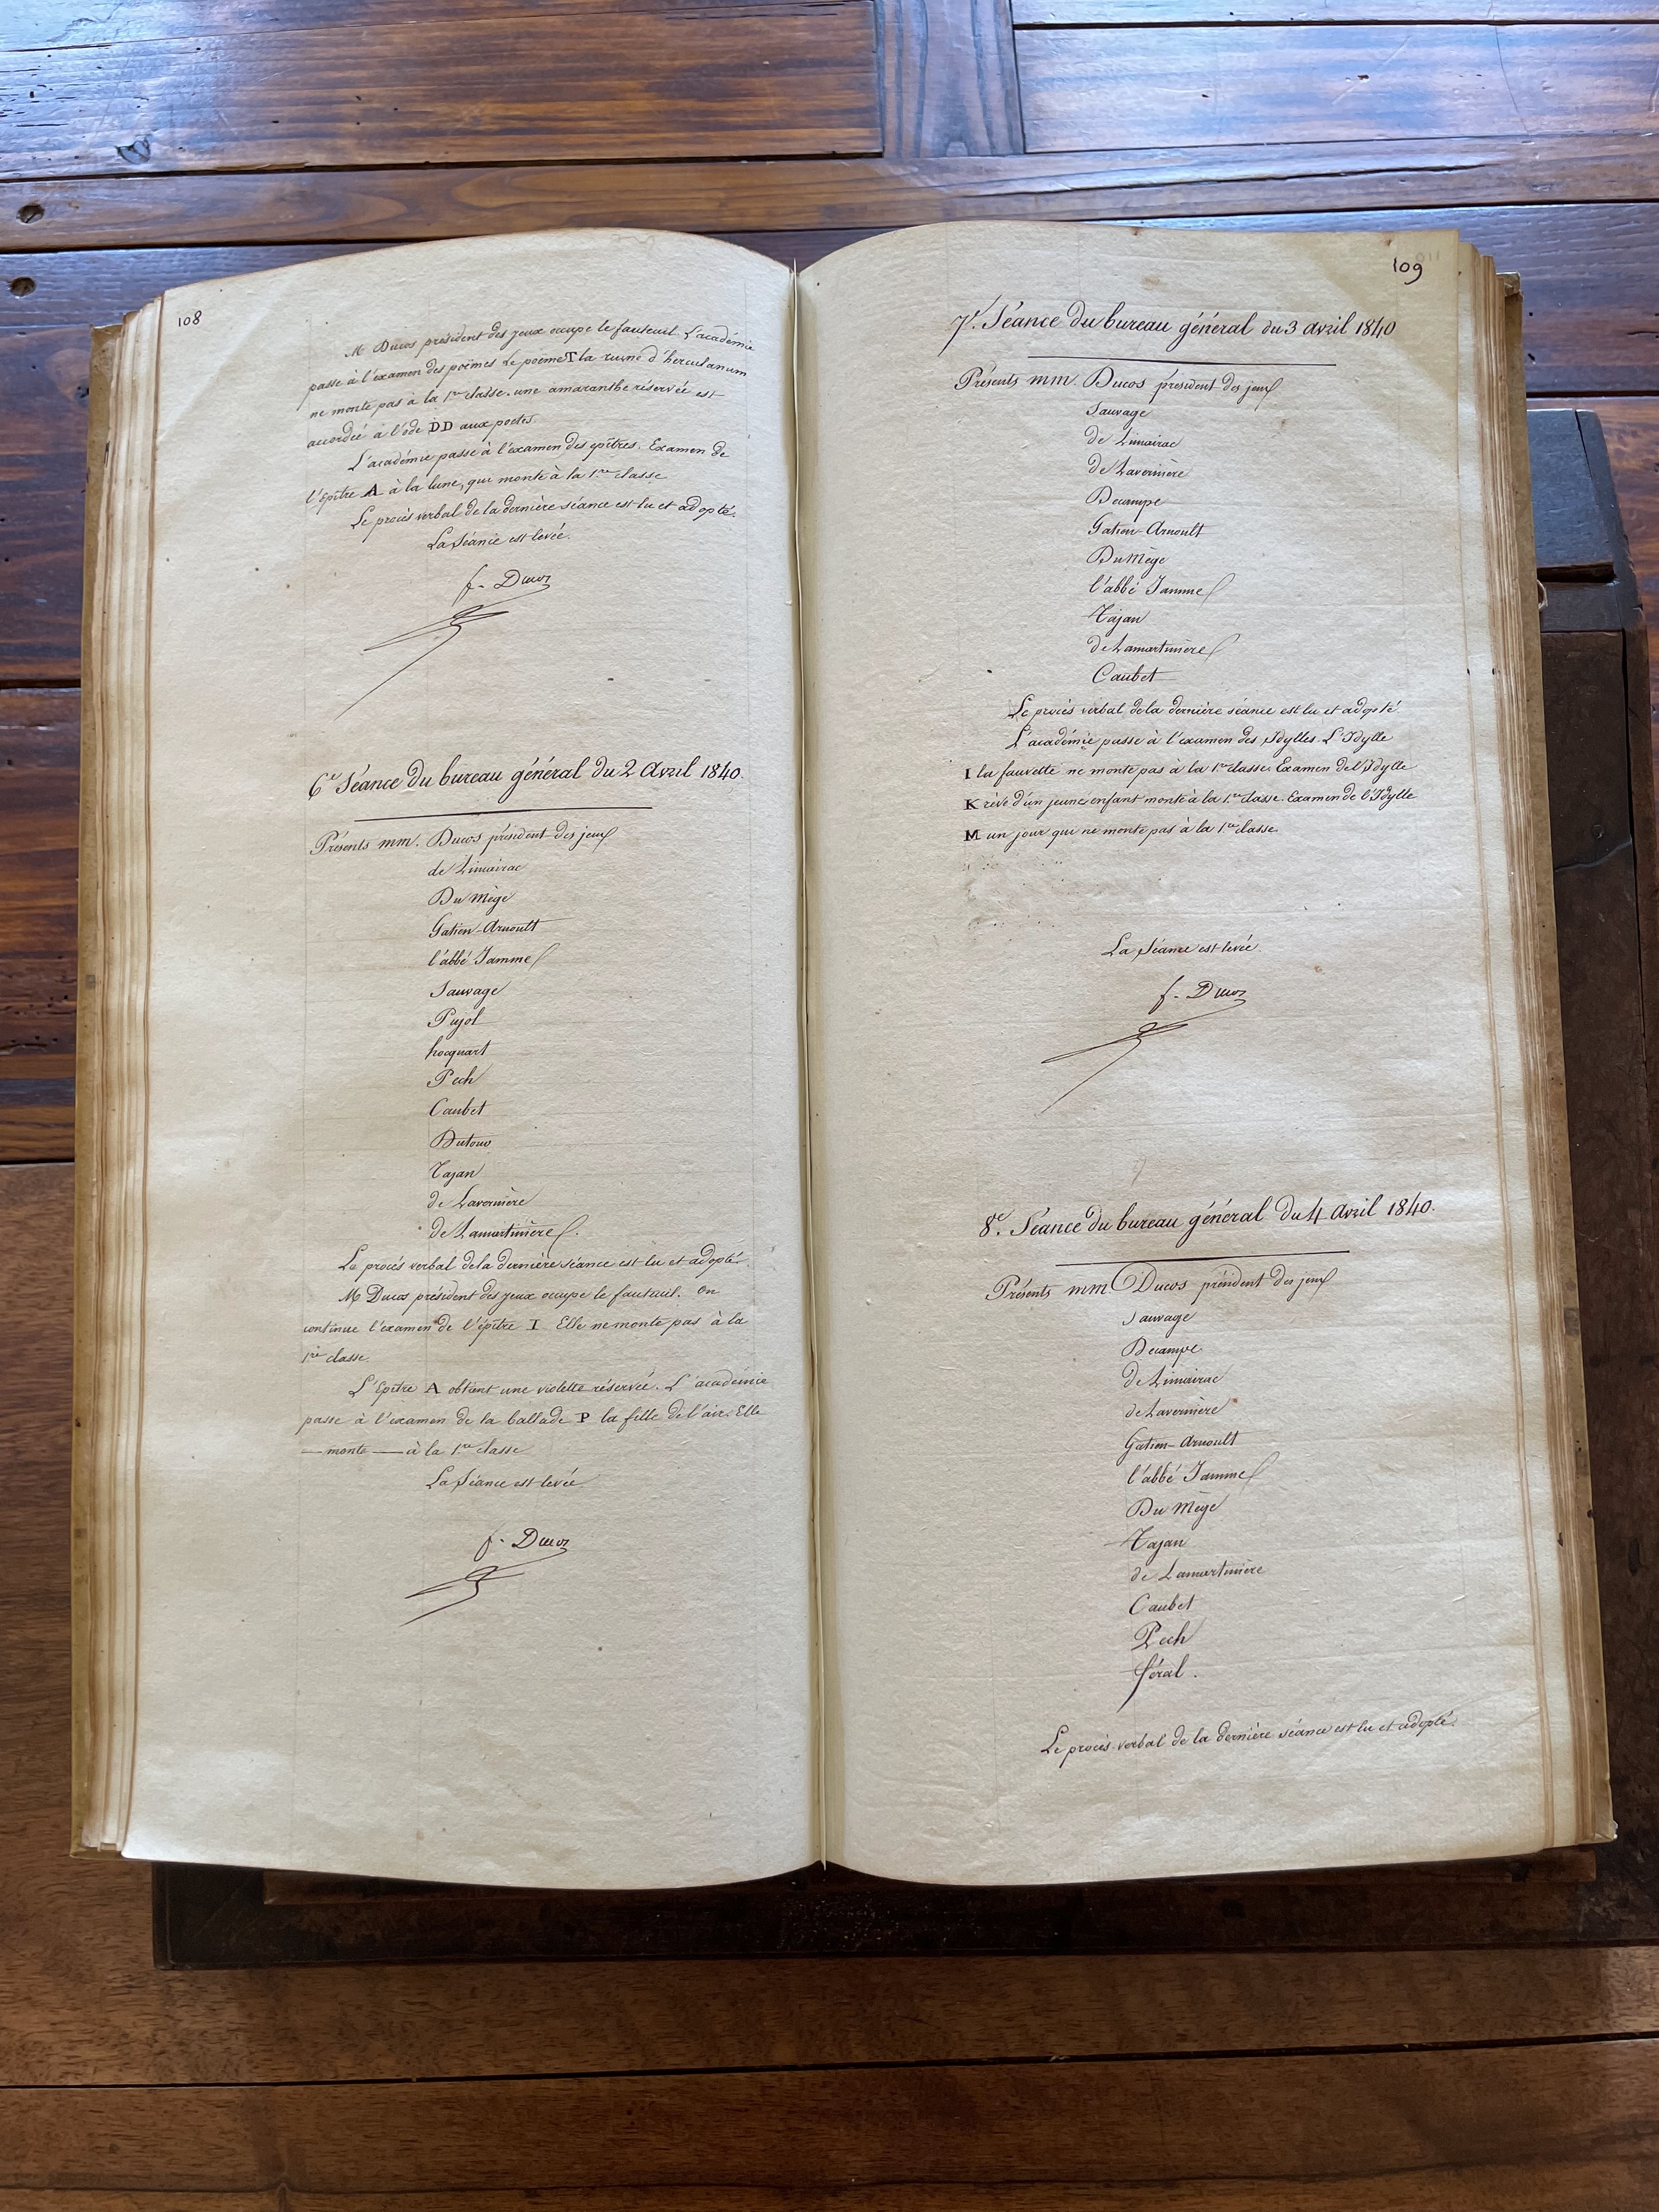 108
M Ducos président des jeux occupe le fauteuil. L'académie
passe à l'examen des poëmes Le poëme T la ruine d'herculanum
ne monte pas à la 1re classe. une amaranthe réservée est
accordée à l'ode DD aux poetes.
L'académie passe à l'examen des epîtres. Examen de
l'épître A à la lune, qui monte à la 1re classe
Le procès verbal de la dernière séance est lu et adopté.
La Séance est levée.
f. Ducos
6e Séance du bureau général du 2 Avril 1840.
Présents mm. Ducos président des jeux
de Limairac
Du Mège
Gatien-Arnoult
l'abbé Jamme
Sauvage
Pujol
hocquart
Pech
Caubet
Dutour
Tajan
de Lavernière
de Lamartinière.
Le procès verbal de la dernière séance est lu et adopté.
M Ducos président des jeux occupe le fauteuil. On
continue l'examen de l'épître I Elle ne monte pas à la
1re classe.
L'Epitre A obtient une violette réservée. L'académie
passe à l'examen de la ballade P la fille de l'air. Elle
— monte — à la 1re classe
La Séance est levée
f. Ducos
109
7e. Séance du bureau général du 3 avril 1840
Présents mm. Ducos président des jeux
Sauvage
de Limairac
de Lavernière
Decampe
Gatien-Arnoult
Du Mège
l'abbé Jamme
Tajan
de Lamartinière
Caubet
Le procès verbal de la dernière séance est lu et adopté
L'académie passe à l'examen des Idylles. L'Idylle
I la fauvette ne monte pas à la 1re classe. Examen de l'Idylle
K rêve d'un jeune enfant monte à la 1re classe. Examen de l'Idylle
M un jour qui ne monte pas à la 1re classe
La Séance est levée.
f. Ducos
8e. Séance du bureau général du 4 Avril 1840.
Présents mm Ducos président des jeux
Sauvage
Decampe
de Limairac
de Lavernière
Gatien-Arnoult
l'abbé Jamme
Du Mège
Tajan
de Lamartinière
Caubet
Pech
féral.
Le procès-verbal de la dernière séance est lu et adopté.